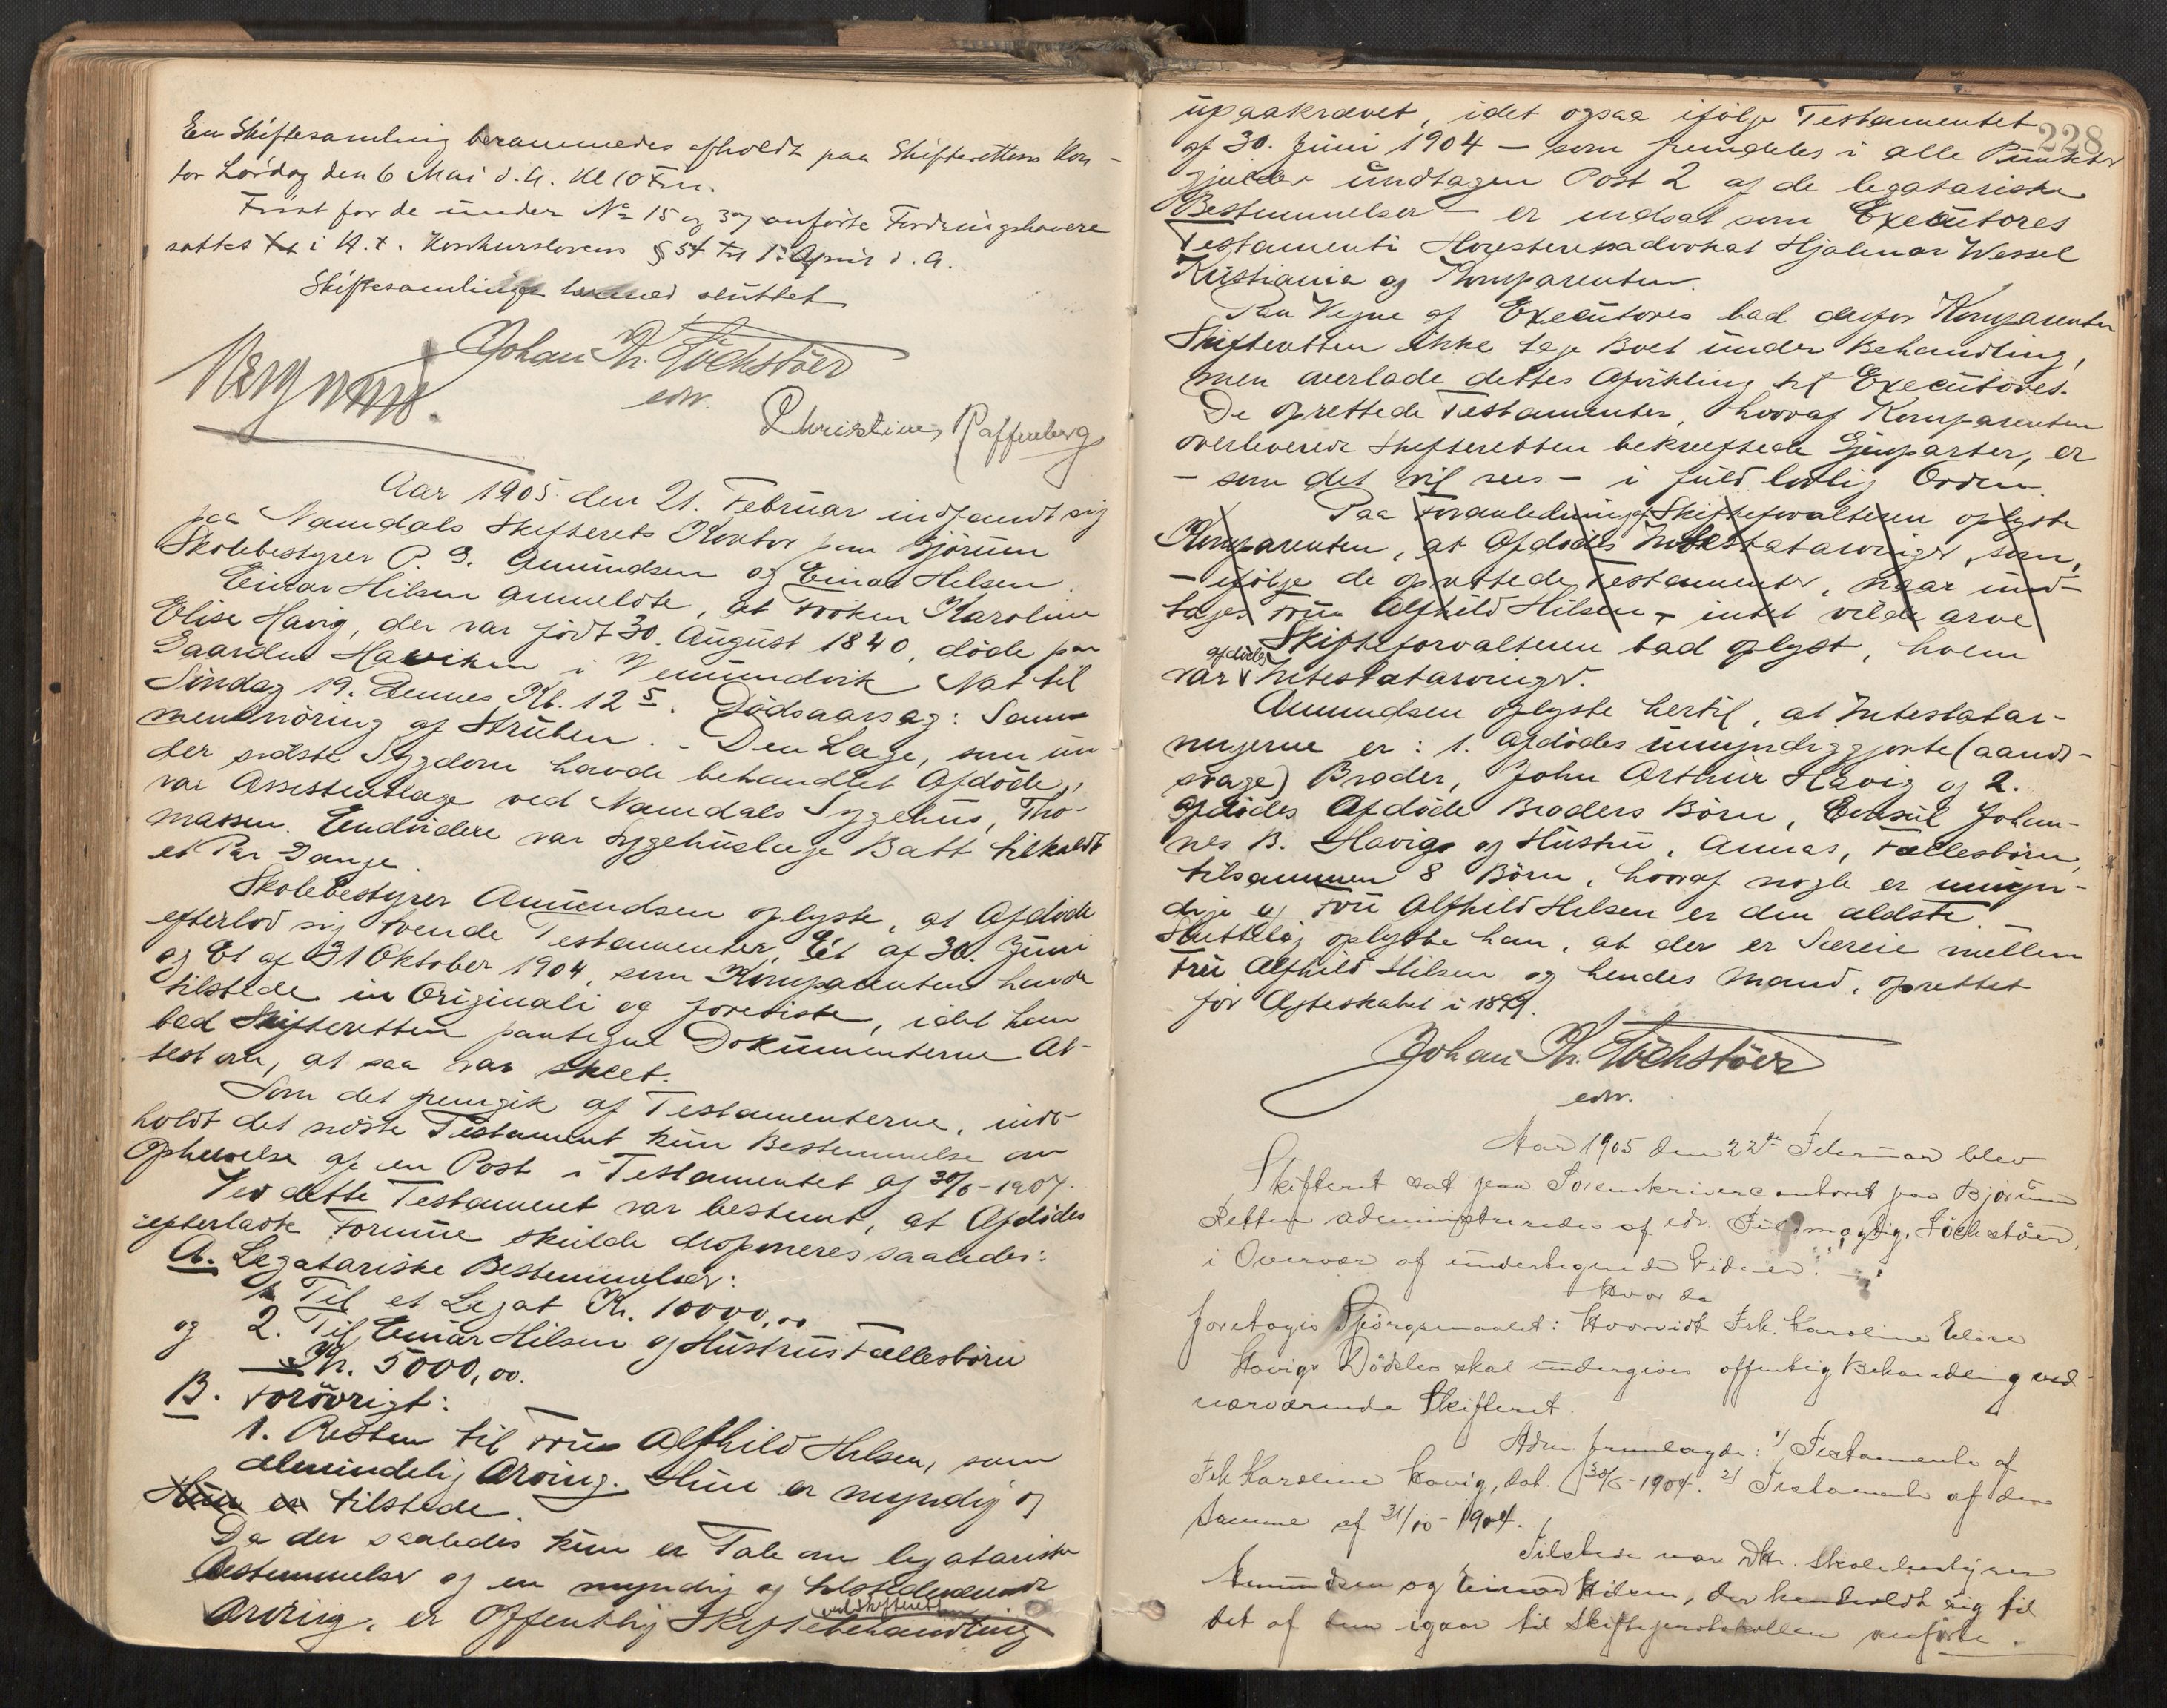 En Skiftesamling berammedes afholdt paa Skifterettens Kon-
tor Lørdag den 6 Mai d. A. Kl 10 Fm.
Frist for de under No 15 og 37 anførte Fordringshavere
sattes i H. t. Konkurslovens § 54 til 1. April d. A.
Skiftesamlingen hermed sluttet
Johan Th. Löchstöer
edv.
Christines Raffenberg
Aar 1905 den 21. Februar indfandt sig
paa Namdals Skifterets Kontor paa Bjørum
Skolebestyrer P. Amundsen og Einar Hilsen.
Einar Hilsen anmeldte, at Frøken Karoline
Elise Havig, der var født 30. August 1840, døde paa
Gaarden Haviken i Vemundvik Nat til
Søndag 19. dennes Kl. 12 5. Dødsaarsag: Sam-
mensnøring af Struben. - Den Læge, som un-
der sidste Sygdom havde behandlet Afdøde,
var Assistentlæge ved Namdals Sygehus, Tho-
massen. Endvidere var Sygehuslæge Batt tilkaldt
et Par Gange.
Skolebestyrer Amundsen oplyste, at Afdøde
efterlod sig tvende Testamenter, Et af 30. Juni
og Et af 31 Oktober 1904, som Komparenten havde
tilstede in Originali og foreviste, idet han
bad Skifteretten paategne Dokumenterne At-
test om, at saa var skeet.
Som det fremgik af Testamenterne, inde-
holdt det sidste Testament kun Bestemmelse om
Ophævelse af en Post i Testamentet af 30/6 - 1904.
Ved dette Testament var bestemt, at Afdødes
efterladte Formue skulde disponeres saaledes:
A. Legatariske Bestemmelser:
1. Til et Legat Kr. 10000,00
og 2. Til Einar Hilsen og Hustrus Fællesbørn
Kr. 5000,00.
B. Forøvrigt:
1. Resten til Fru Alfhild Hilsen, som
almindelig Arving. Hun er myndig og
Hun er tilstede.
Da der saaledes kun er Tale om legatariske
Bestemmelser og en myndig og tilstedeværende
ved Skifteretten
Arving, er Offentlig Skiftebehandling
228
upaakrævet, idet ogsaa ifølge Testamentet
af 30. Juni 1904 - som fremdeles i alle Punkter
gjælder undtagen Post 2 af de legatariske
Bestemmelser - er indsat som Executores
Testamenti Høiesteretsadvokat Hjalmar Wessel
Kristiania og Komparenten.
Paa Vegne af Executores bad derfor Komparenten
Skifteretten ikke tage Boet under Behandling,
men overlade dettes Afvikling til Executores.
De oprettede Testamenter, hvoraf Komparenten
overleverede Skifteretten bekræftede Gjenparter, er
- som det vil sees - i fuld lovlig Orden.
Paa Foranledning af Skifteforvalteren oplyste
Komparenten, at Afdødes Intestatarvinger, som,
- ifølge de oprettede Testamenter, naar und-
tages Fru Alfhild Hilsen - intet vilde arve
Skifteforvalteren bad oplyst, hvem
afdødes
var Intestatarvinger.
Amundsen oplyste hertil, at Intestatar-
vingerne er: 1. Afdødes umyndiggjorte (aands-
svage) Broder, John Arthur Havig og 2.
Afdødes Afdøde Broders Børn, Consul Johan-
nes B. Havigs og Hustru, Annas, Fællesbørn,
tilsammen 8 Børn, hvoraf nogle er umyn-
dige og Fru Alfhild Hilsen er den ældste
Sluttelig oplyste han, at der er Særeie mellem
Fru Alfhild Hilsen og hendes Mand, oprettet
før Ægteskabet i 1899.
Johan Th. Löchstöer
edv.
Aar 1905 den 22de Februar blev
Skifteret sat paa Sorenskrivercontoret paa Bjørum
Retten administreredes af edv. Fuldmægtig, Löchstöer,
i Overvær af undertegnede Vidner.
Hvor da
foretoges Spørgsmaalet: Hvorvidt Frk. Karoline Elise
Havigs Dødsbo skal undergives offentlig Behandling ved
nærværende Skifteret.
Adm. fremlagde: 1) Testamente af
Frk Karoline Havig, dat. 30/6 - 1904. 2) Testamente af den
Samme af 31/10 - 1904.
Tilstede var Hr. Skolebestyrer
Amundsen og Einar Hilsen, der henholdt sig til
det af dem igaar til Skifteprotokollen anførte.